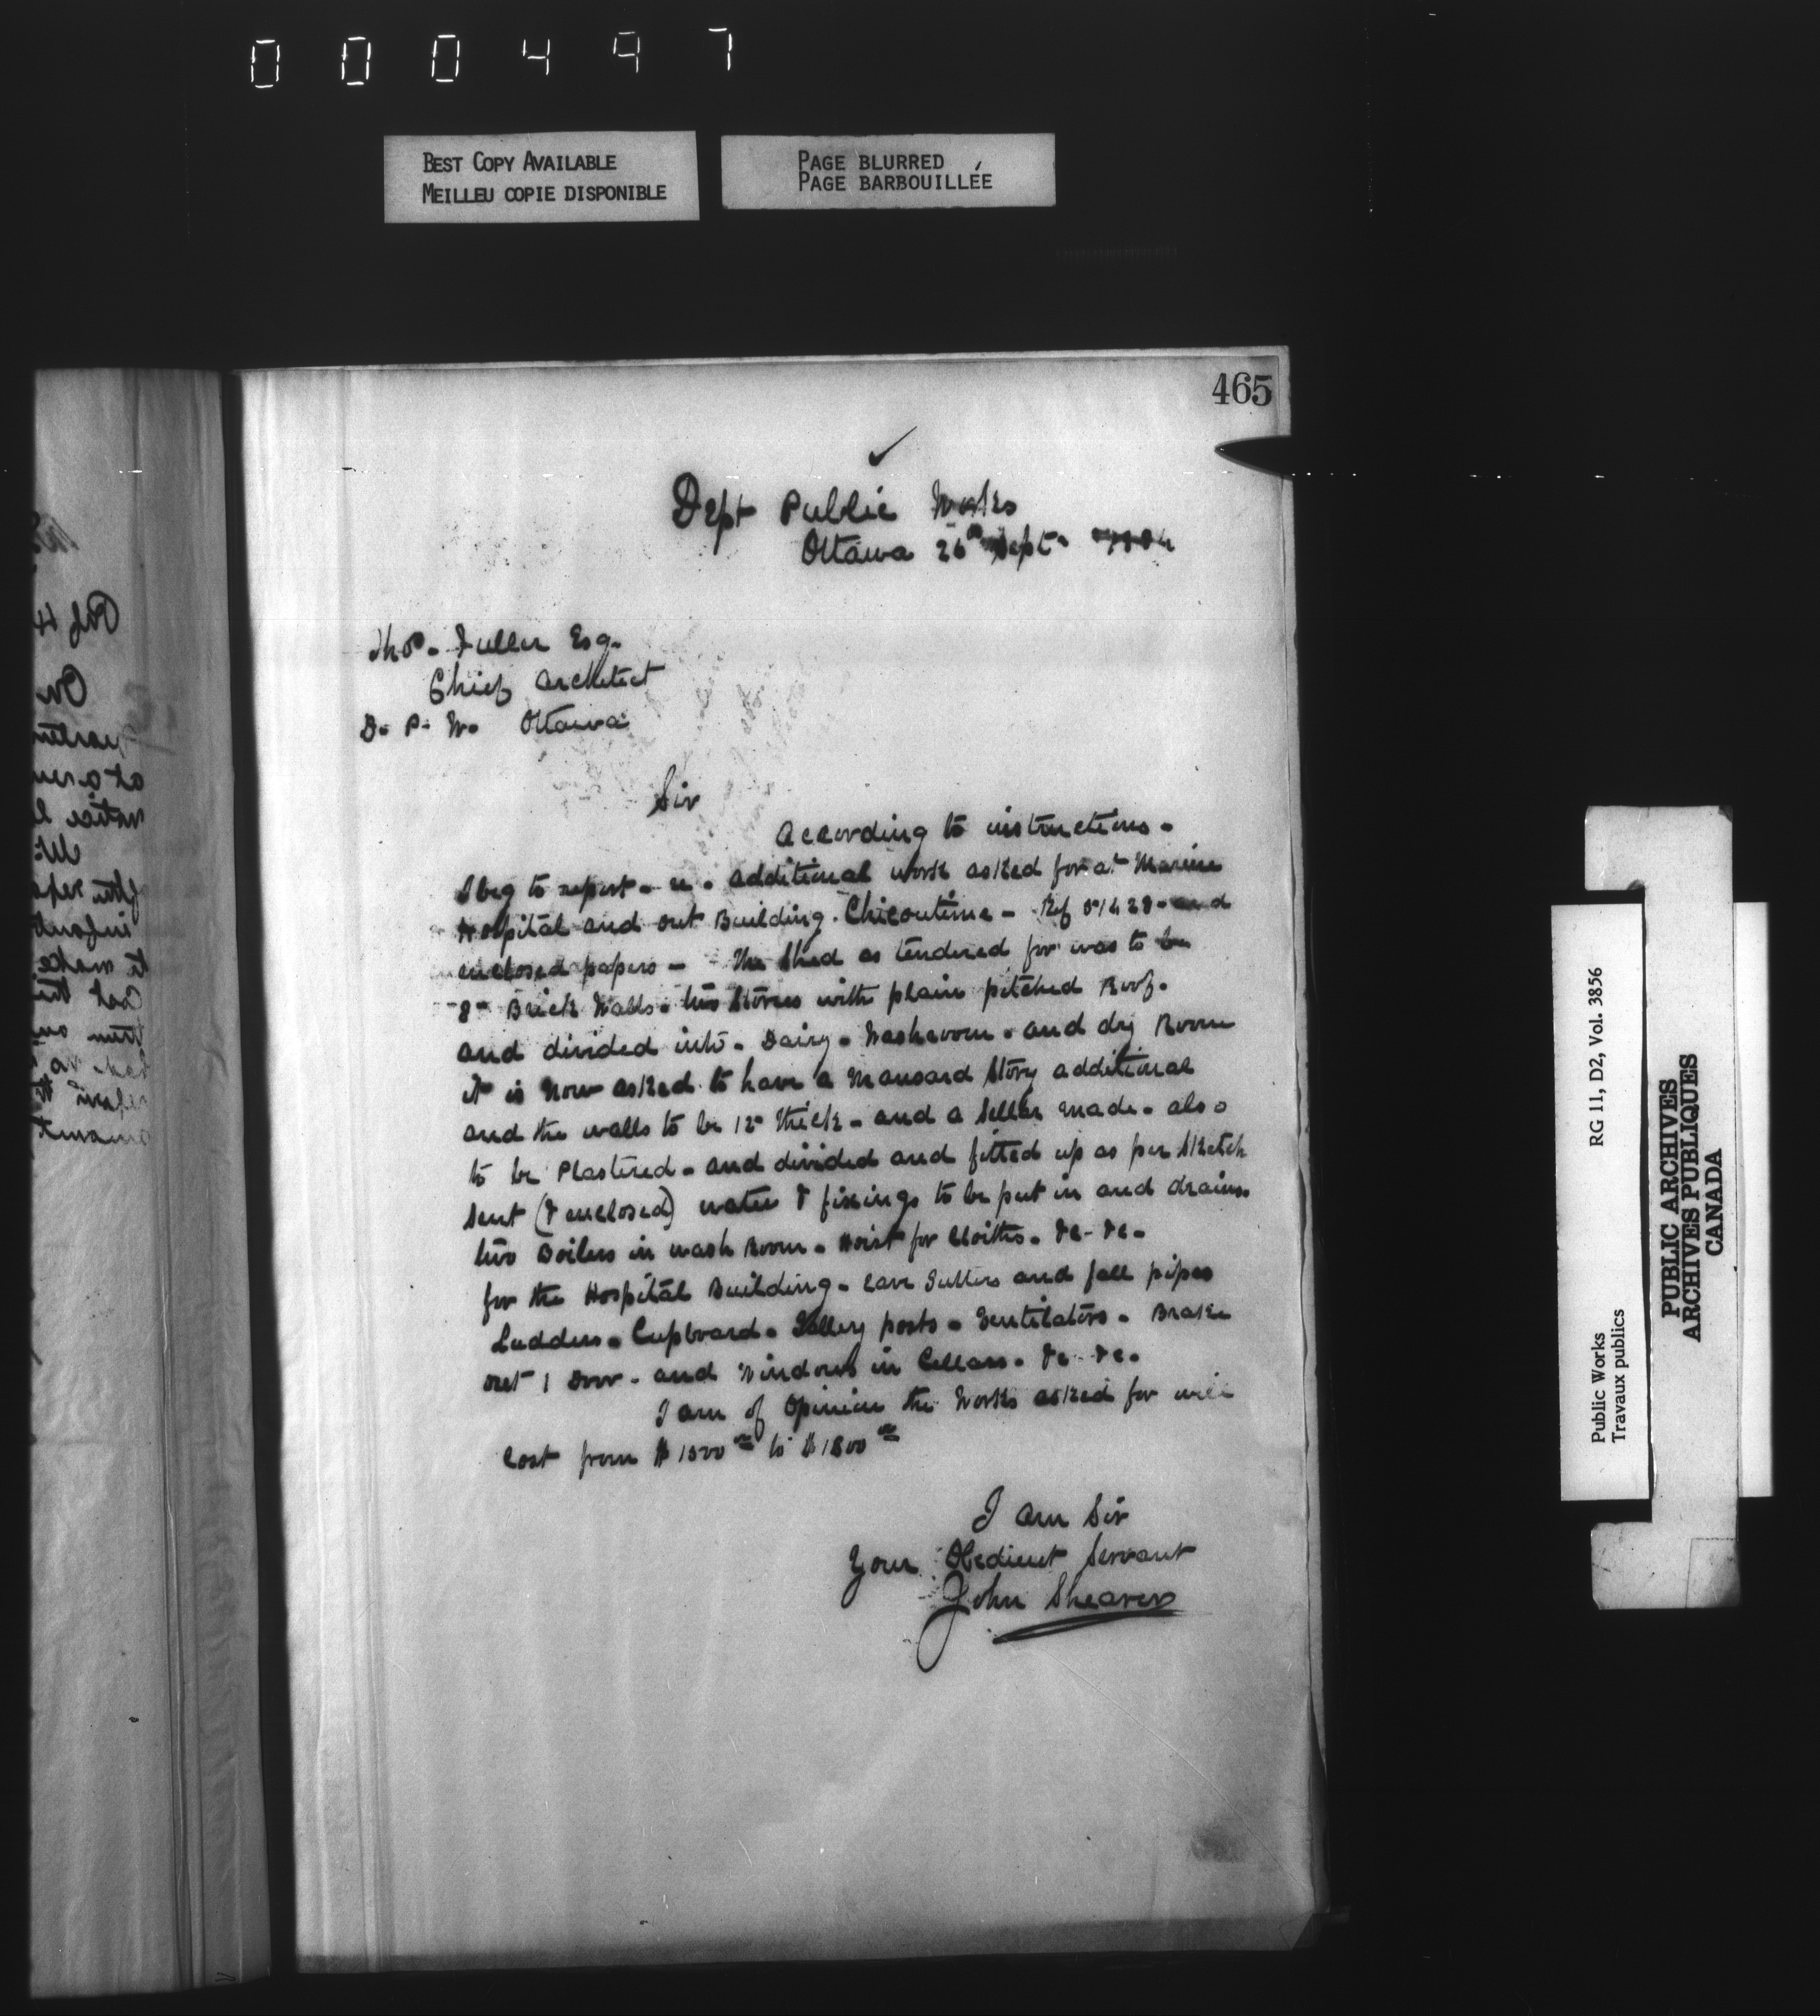 000497
BEST COPY AVAILABLE
MEILLEU COPIE DISPONIBLE
PAGE BLURRED
PAGE BARBOUILLÉE
465
Dept Public Works
Ottawa 26th Sept.
Thos. Fuller Esq.
Chief Architect
D. P. W. Ottawa
Sir
According to instructions.
I beg to report - additional work asked for at Marine
Hospital and out Building. Chicoutime - Ref and
enclosed papers - The Shed as tendered for was to be
8" Brick Walls. two Stories with plain pitched Roof.
and divided into. Dairy. Washroom. and dry Room
it is now asked to have a Mansard Story additional
and the walls to be 12" thick - and a Seller made. also
to be Plastered - and divided and fitted up as per Sketch
Sent (& enclosed) water & fixings to be put in and drains.
two Boilers in wash Room. Hoist for Cloiths. &c - &c.
for the Hospital Building - Eave Gutters and fall pipes
Ladders. Cupboard. Gallery posts. Ventilators. Brake
out 1 Door. and Windows in Cellars. &c &c.
I am of Opinion the Works asked for will
Cost from $1500 00 to $1800 00
I am Sir
Your Obedient Servant
John Shearer
RG 11, D2, Vol. 3856
Public Works
Travaux publics
PUBLIC ARCHIVES
ARCHIVES PUBLIQUES
CANADA